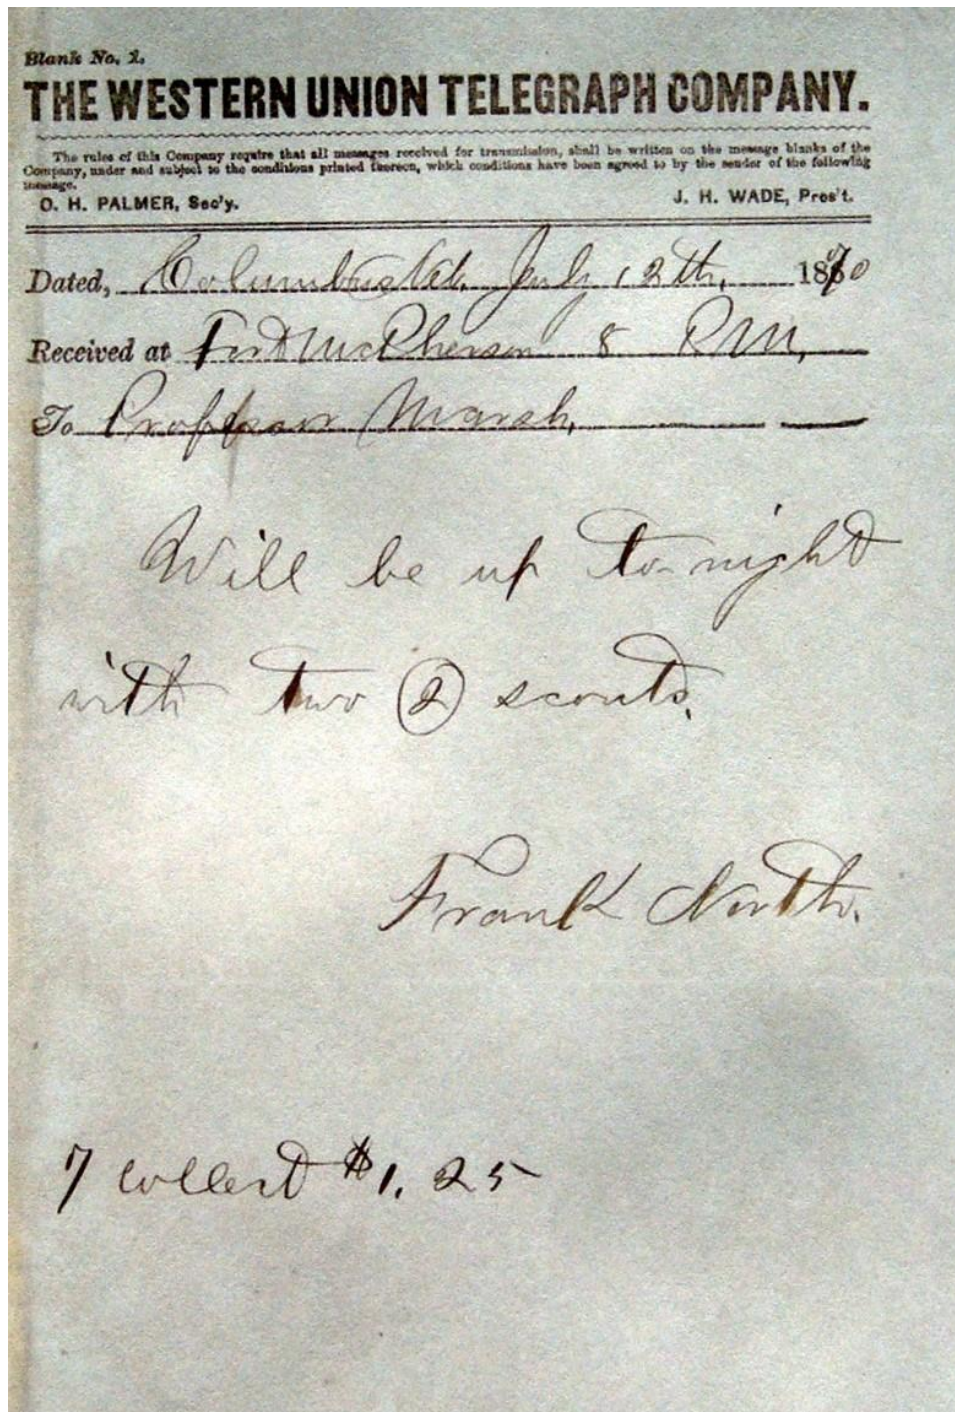 Blank No. 1.
THE WESTERN UNION TELEGRAPH COMPANY.
The rules of this Company require that all messages received for transmission, shall be written on the message blanks of the
Company, under and subject to the conditions printed thereon, which conditions have been agreed to by the sender of the following
message.
O. H. PALMER, Sec'y. J. H. WADE, Pres't.
Dated, Columbus Neb. July 12th, 1870
Received at Fort McPherson 8 PM,
To Professor Marsh,
Will be up to-night
with two (2) scouts.
Frank North.
7 Collect $1.25